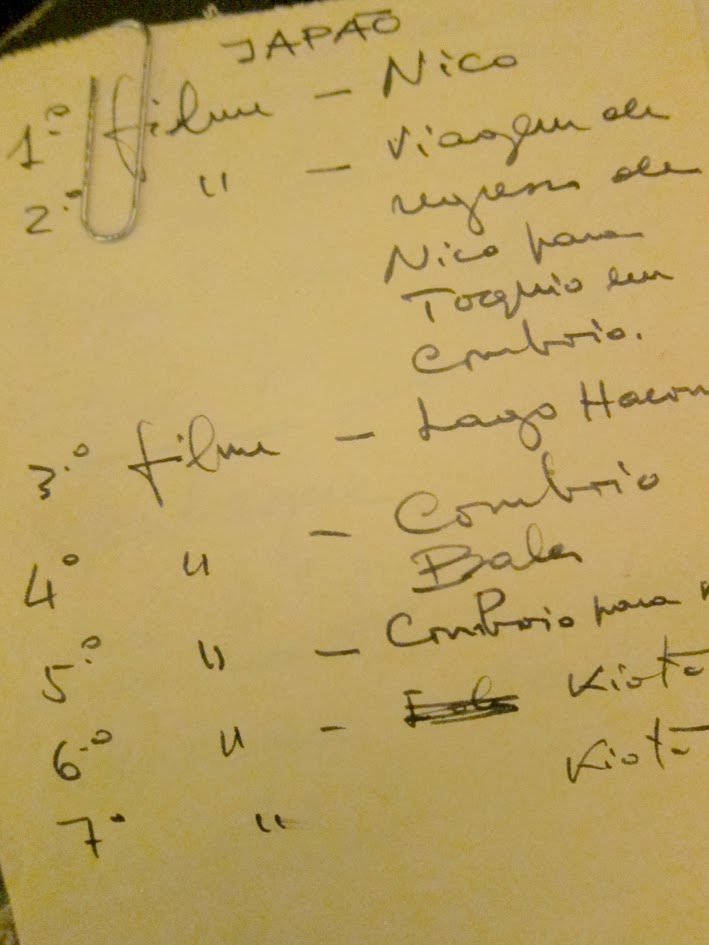 JAPÃO
1.º filme - Nico
2.º " - Viagem de
regresso de
Nico para
Toquio em
Comboio.
3.º filme - Lago Hacon
4º " - Comboio
Bala
5.º " - Comboio para
6.º " - Kioto
7º " Kioto